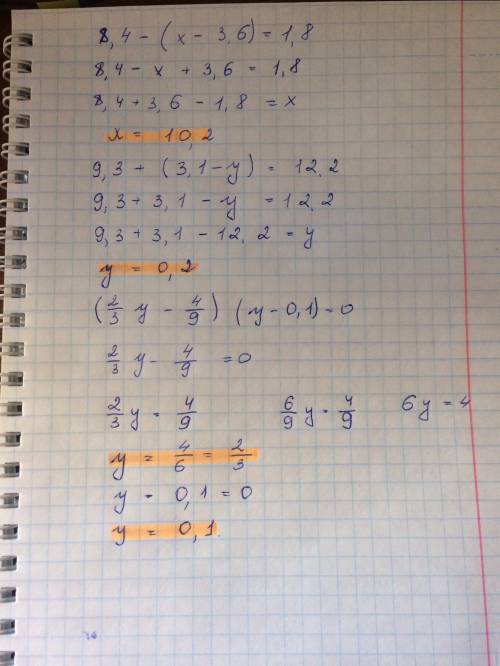 8,4 - (x - 3,6) = 1,8
8,4 - x + 3,6 = 1,8
8,4 + 3,6 - 1,8 = x
x = 10,2
9,3 + (3,1 - y) = 12.2
9,3 + 3,1 - y = 12.2
9,3 + 3,1 - 12.2 = y
y = 0,2
(2/3 y - 4/9) (y - 0,1) = 0
2/3 y - 4/9 = 0
2/3 y = 4/9 6/9 y = 4/9 6y = 4
y = 4/6 = 2/3
y - 0,1 = 0
y = 0,1